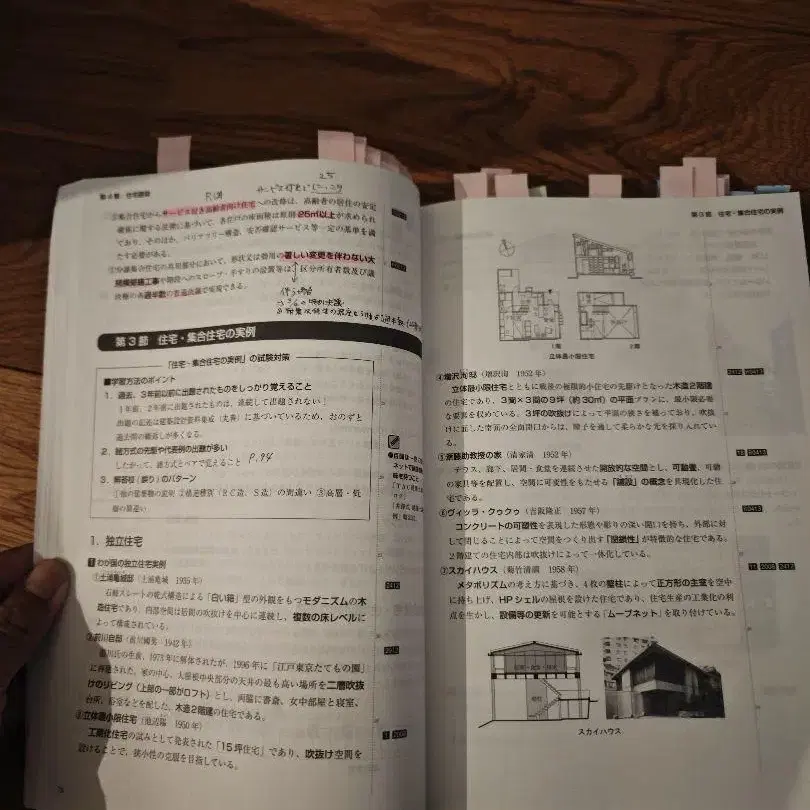 第4章 住宅建築
②集合住宅からサービス付き高齢者向け住宅への改修は、高齢者の居住の安定
確保に関する法律に基づいて、各住戸の床面積は原則25㎡以上が求められ
ており、そのほか、バリアフリー構造、安否確認サービス等一定の基準を満
たす必要がある。
著しい変更を伴わない大
規模修繕工事や階段へのスロープ・手すりの設置等は、区分所有者数及び議
決権の各過半数の普通決議で実現できる。
第3節 住宅・集合住宅の実例
「住宅・集合住宅の実例」の試験対策
■学習方法のポイント
1. 過去、3年前以前に出題されたものをしっかり覚えること
1年前、2年前に出題されたものは、連続して出題されない！
出題の記述は建築設計資料集成（丸善）に基づいているため、おのずと
過去問の繰返しが多くなる。
したがって、建方式とペアで覚えること P.94
3. 解答枝（誤り）のパターン
1. 独立住宅
1 わが国の独立住宅実例
①土浦亀城邸（土浦亀城 1935年）
石綿スレートの乾式構造による「白い箱」型の外観をもつモダニズムの木
造住宅であり、内部空間は居間の吹抜けを中心に連続し、複数の床レベルに
よって構成されている。
②前川自邸（前川國男 1942年）
前川氏の生前、1973年に解体されたが、1996年に「江戸東京たてもの園」
に再建された。家の中心、大屋根中央部分の天井の最も高い場所を二層吹抜
けのリビング（上部の一部がロフト）とし、両脇に書斎、女中部屋と寝室、
台所、浴室などを配した、木造2階建の住宅である。
③立体最小限住宅（池辺陽 1950年）
工業化住宅の試みとして発表された「15坪住宅」であり、吹抜け空間を
設けることで、狭小性の克服を目指している。
第3節 住宅・集合住宅の実例
1階
2階
立体最小限住宅
④増沢洵邸（増沢洵 1952年）
立体最小限住宅とともに戦後の極限的小住宅の先駆けとなった木造2階建
の住宅であり、3間×3間の9坪（約30㎡）の平面プランに、最小限必要
な要素を収めている。3坪の吹抜けによって平面の狭さを補っており、吹抜
けに面した南面の全面開口からは、障子を通して柔らかな光を採り入れてい
る。
⑤斎藤助教授の家（清家清 1952年）
テラス、廊下、居間・食堂を連続させた開放的な空間とし、可動畳、可動
の家具等を配置し、空間に可変性をもたせる「舗設」の概念を具現化した住
宅である。
⑥ヴィッラ・クゥクゥ（吉阪隆正 1957年）
コンクリートの可塑性を表現した形態や彫りの深い開口を持ち、外部に対
して閉じることによって空間をつくり出す「閉鎖性」が特徴的な住宅である。
2階建ての住宅内部は吹抜けによって一体化している。
⑦スカイハウス（菊竹清訓 1958年）
メタボリズムの考え方に基づき、4枚の壁柱によって正方形の主室を空中
に持ち上げ、HPシェルの屋根を設けた住宅であり、住宅生産の工業化の利
点を生かし、設備等の更新を可能とする「ムーブネット」を取り付けている。
スカイハウス